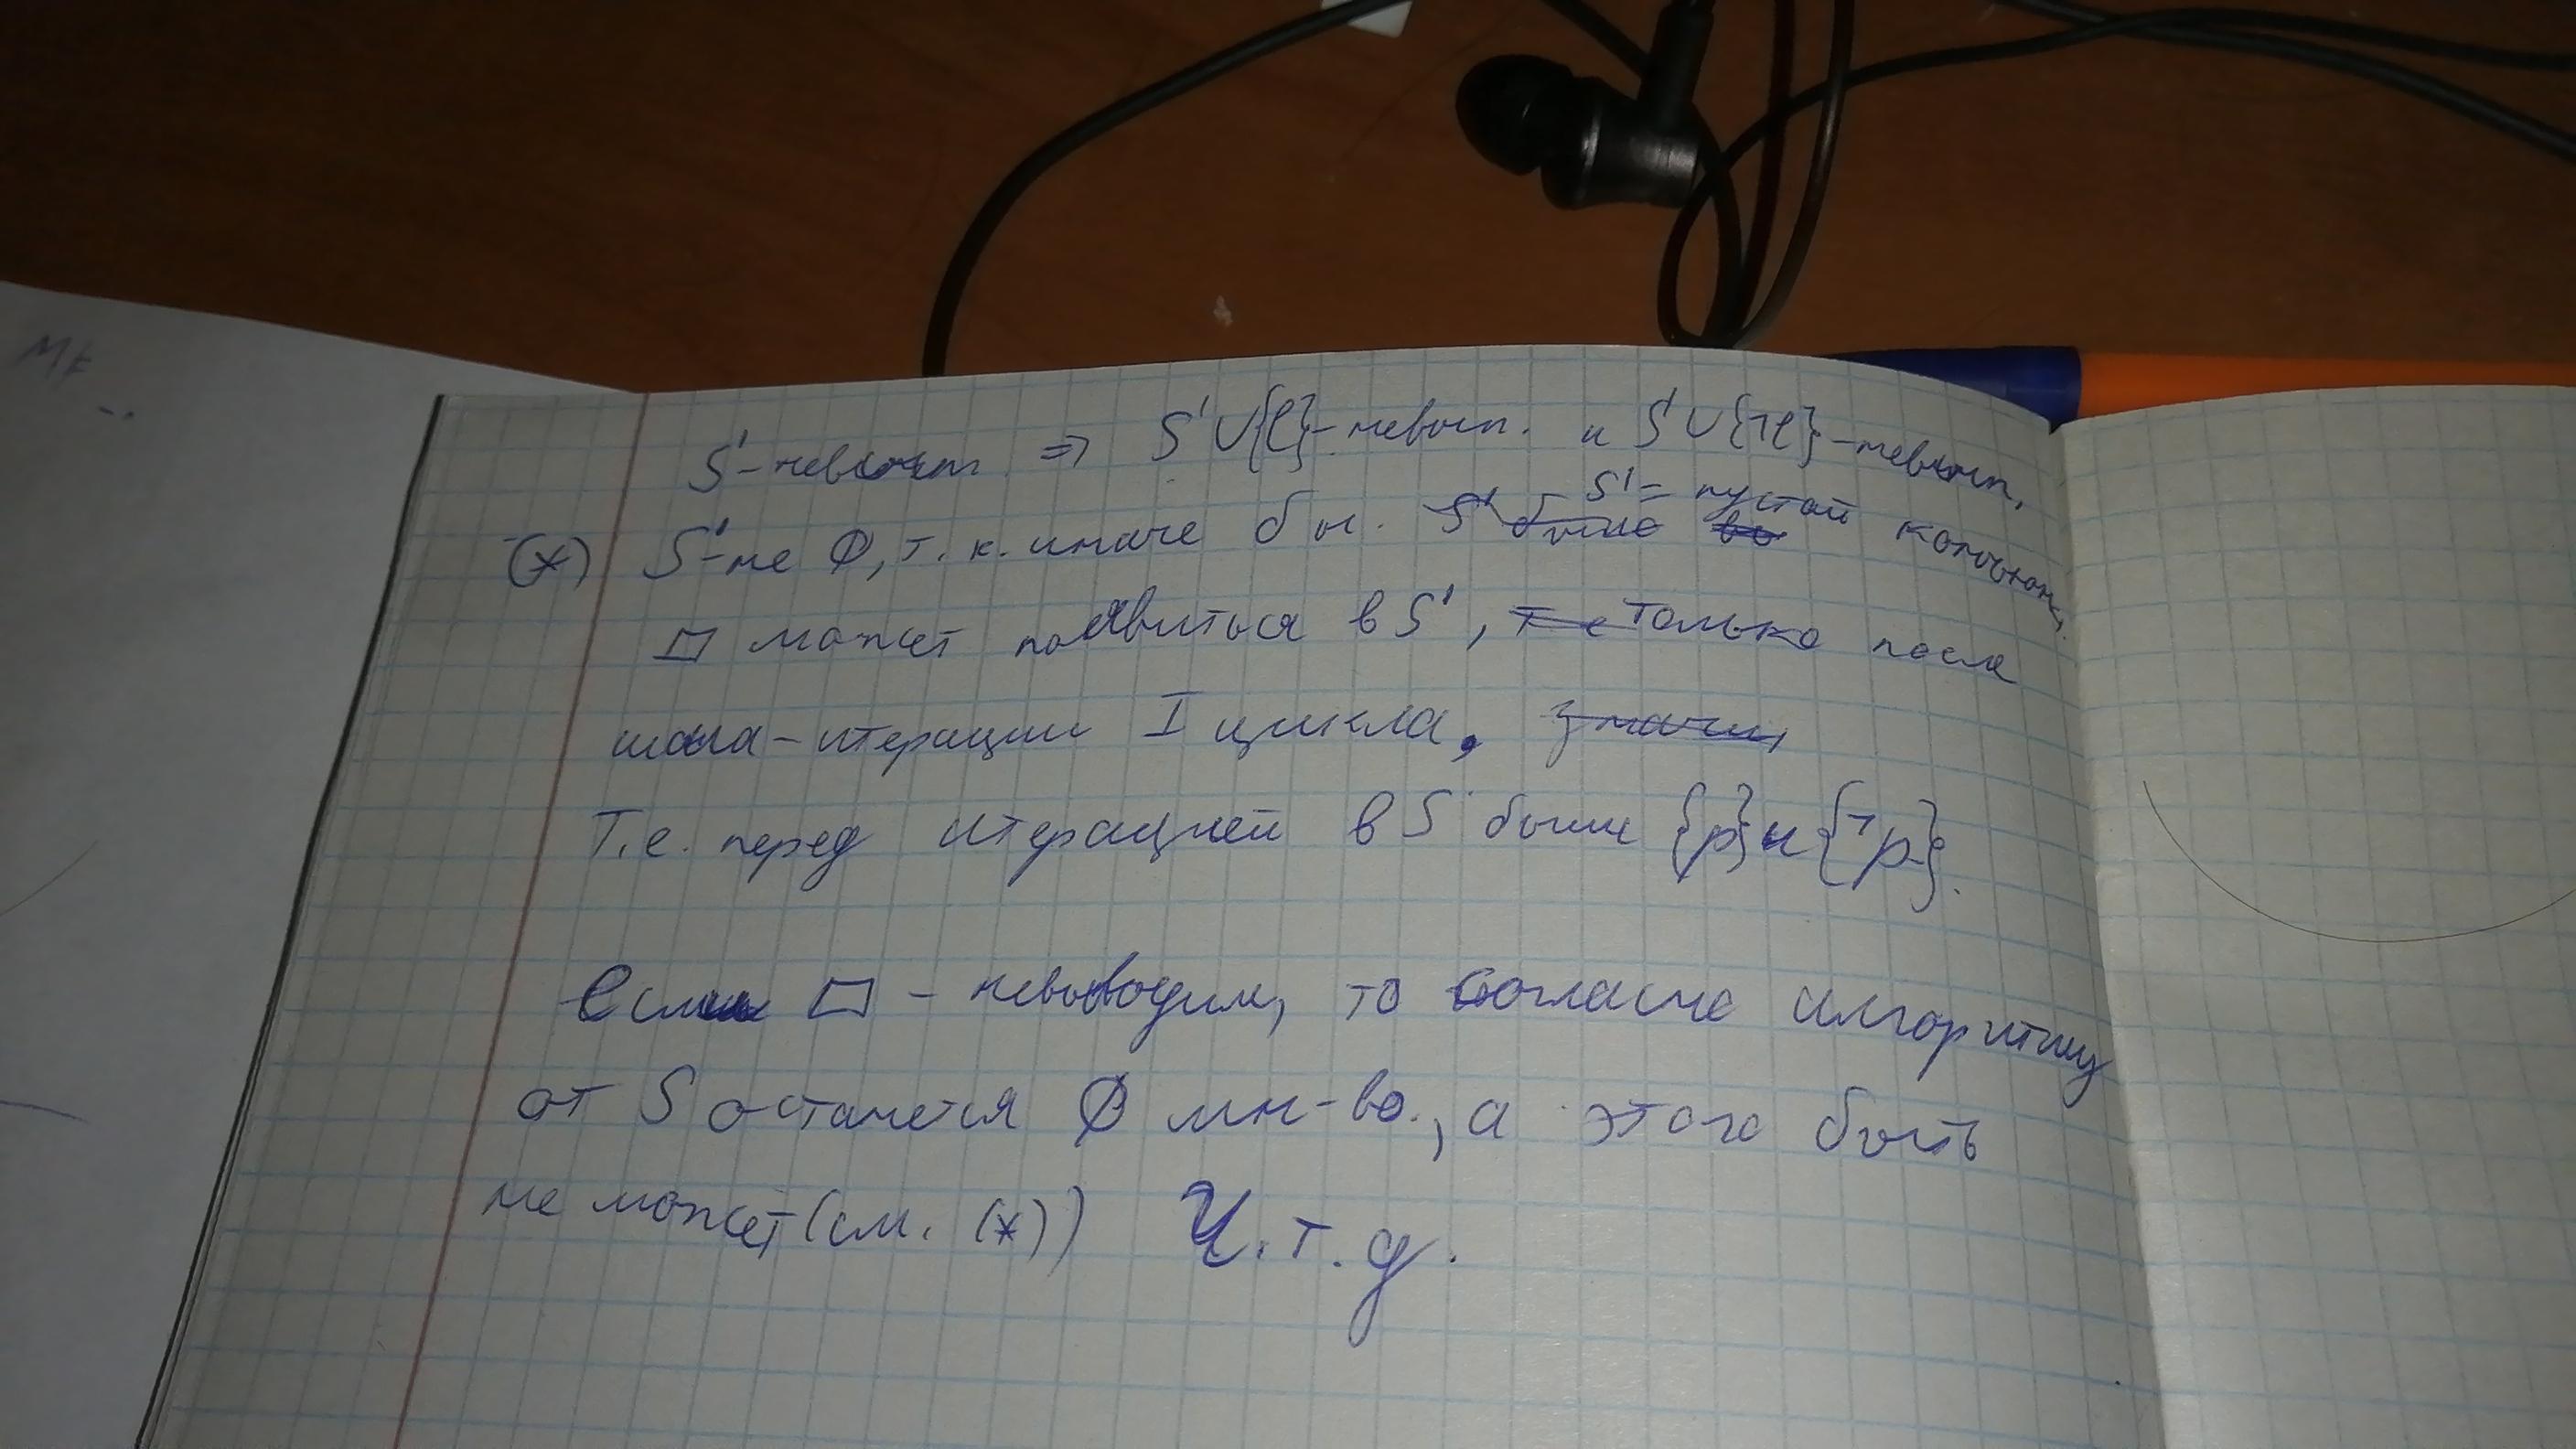 S'-невыт ⇒ S'∪{l}-невып. и S'∪{¬l}-невып.
(*) S'-не Ø, т.к. иначе бы S' = пустой конъюнк.
□ может появиться в S', только после
шага-итерации I цикла,
Т.е. перед итерацией в S были {p} и {¬p}.
Если □ - невыводим, то согласно алгоритму
от S останется Ø мн-во., а этого быть
не может (см. (*)) Ч.т.д.